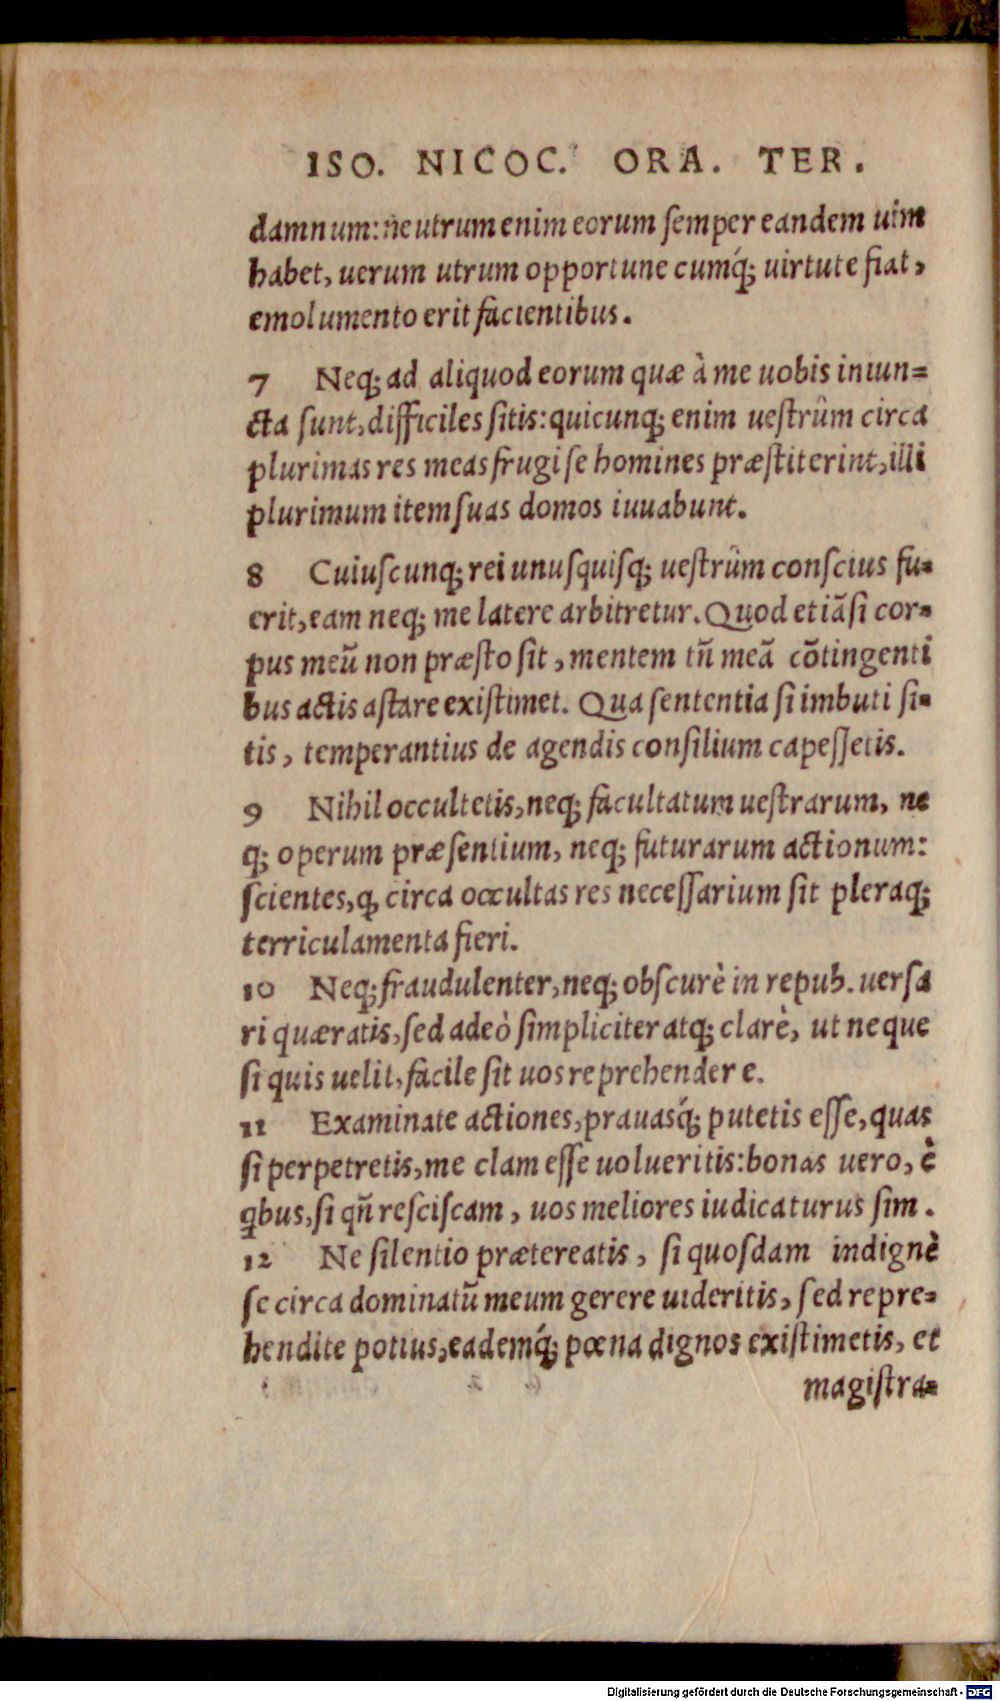 ISO. NICOC. ORA. TER.
damnum: neutrum enim eorum semper eandem uim
habet, uerum utrum opportune cumq́; uirtute fiat,
emolumento erit facientibus.
7 Neq; ad aliquod eorum quæ à me uobis iniun=
cta sunt, difficiles sitis: quicunq; enim uestrûm circa
plurimas res meas frugi se homines præstiterint, illi
plurimum item suas domos iuuabunt.
8 Cuiuscunq; rei unusquisq; uestrûm conscius fu=
erit, eam neq; me latere arbitretur. Quod etiãsi cor=
pus meũ non præsto sit, mentem tñ meã cõtingenti
bus actis astare existimet. Qua sententia si imbuti si=
tis, temperantius de agendis consilium capessetis.
9 Nihil occultetis, neq; facultatum uestrarum, ne
q; operum præsentium, neq; futurarum actionum:
scientes, ꝙ circa occultas res necessarium sit pleraq;
terriculamenta fieri.
10 Neq; fraudulenter, neq; obscurè in repub. uersa
ri quæratis, sed adeò simpliciter atq; clarè, ut neque
si quis uelit, facile sit uos reprehendere.
11 Examinate actiones, prauasq́; putetis esse, quas
si perpetretis, me clam esse uolueritis: bonas uero, è
qbus, si qñ resciscam, uos meliores iudicaturus sim.
12 Ne silentio prætereatis, si quosdam indignè
se circa dominatũ meum gerere uideritis, sed repre=
hendite potius, eademq́; pœna dignos existimetis, et
magistra=
Digitalisierung gefördert durch die Deutsche Forschungsgemeinschaft - DFG